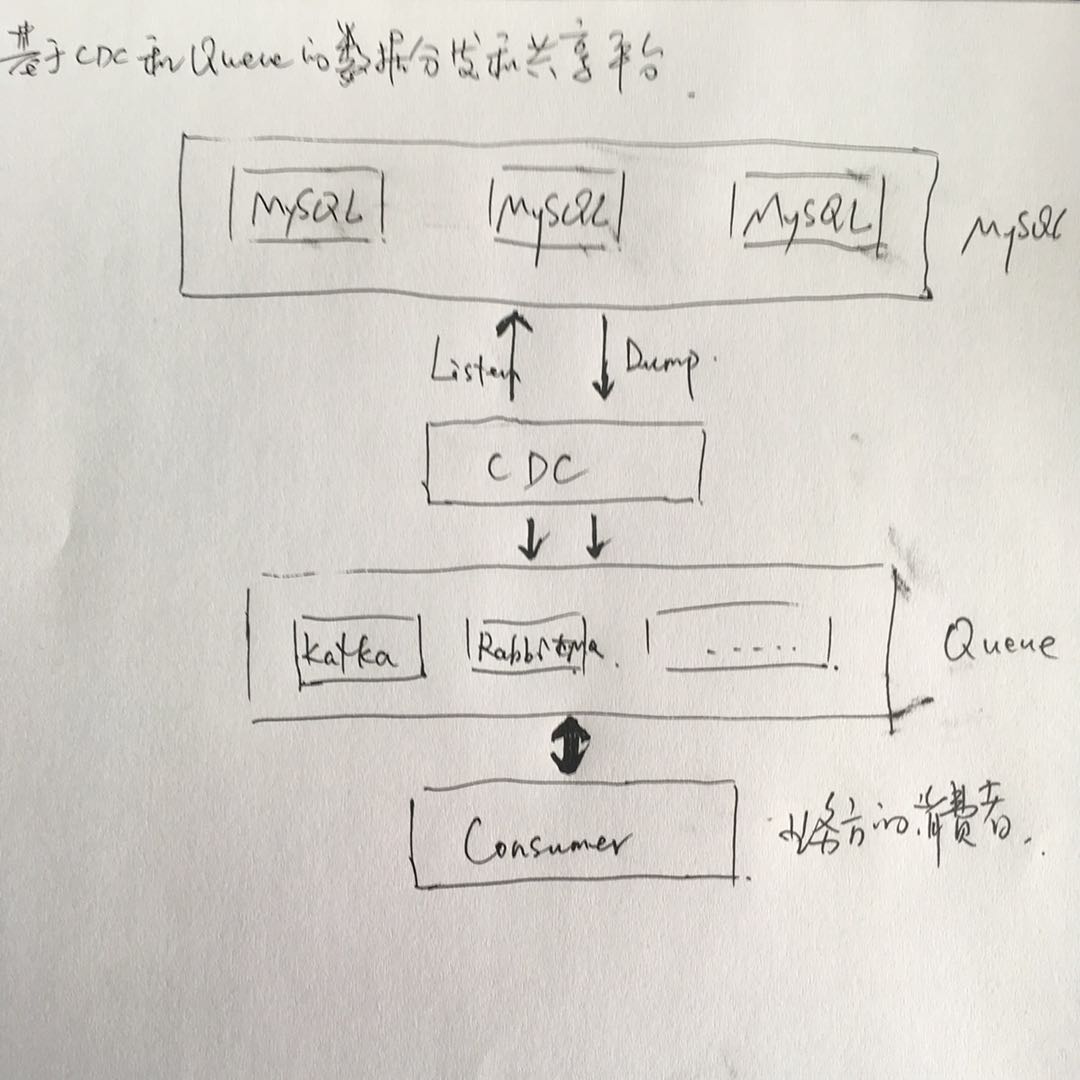 基于CDC和Queue的数据分发和共享平台.
MySQL MySQL MySQL MySQL
Listen Dump.
CDC
Kafka RabbitMq ..... Queue
Consumer 业务方的消费者.